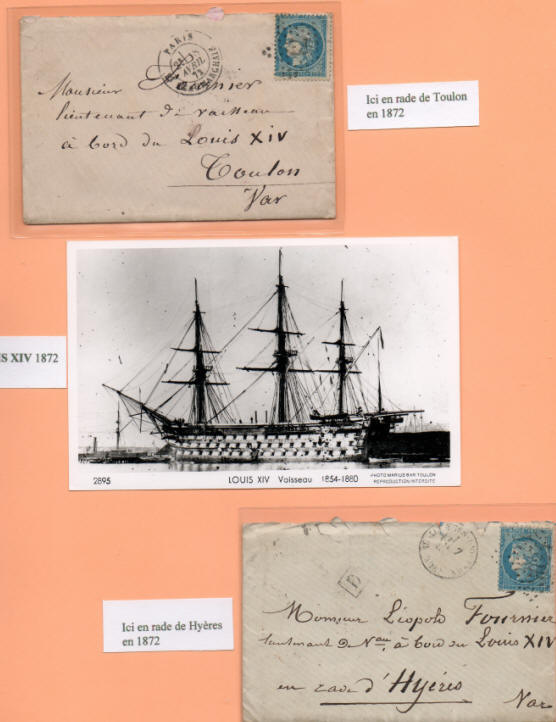 PARIS
AVRIL
Monsieur Fournier
lieutenant de vaisseau
à bord du Louis XIV
Toulon
Var
Ici en rade de Toulon
en 1872
IS XIV 1872
2895
LOUIS XIV Vaisseau 1854-1880
PHOTO MARIUS BAR TOULON
REPRODUCTION INTERDITE
Ici en rade de Hyères
en 1872
Monsieur Léopold Fournier
lieutenant de Vau, à bord du Louis XIV
en rade d'Hyérès
Var